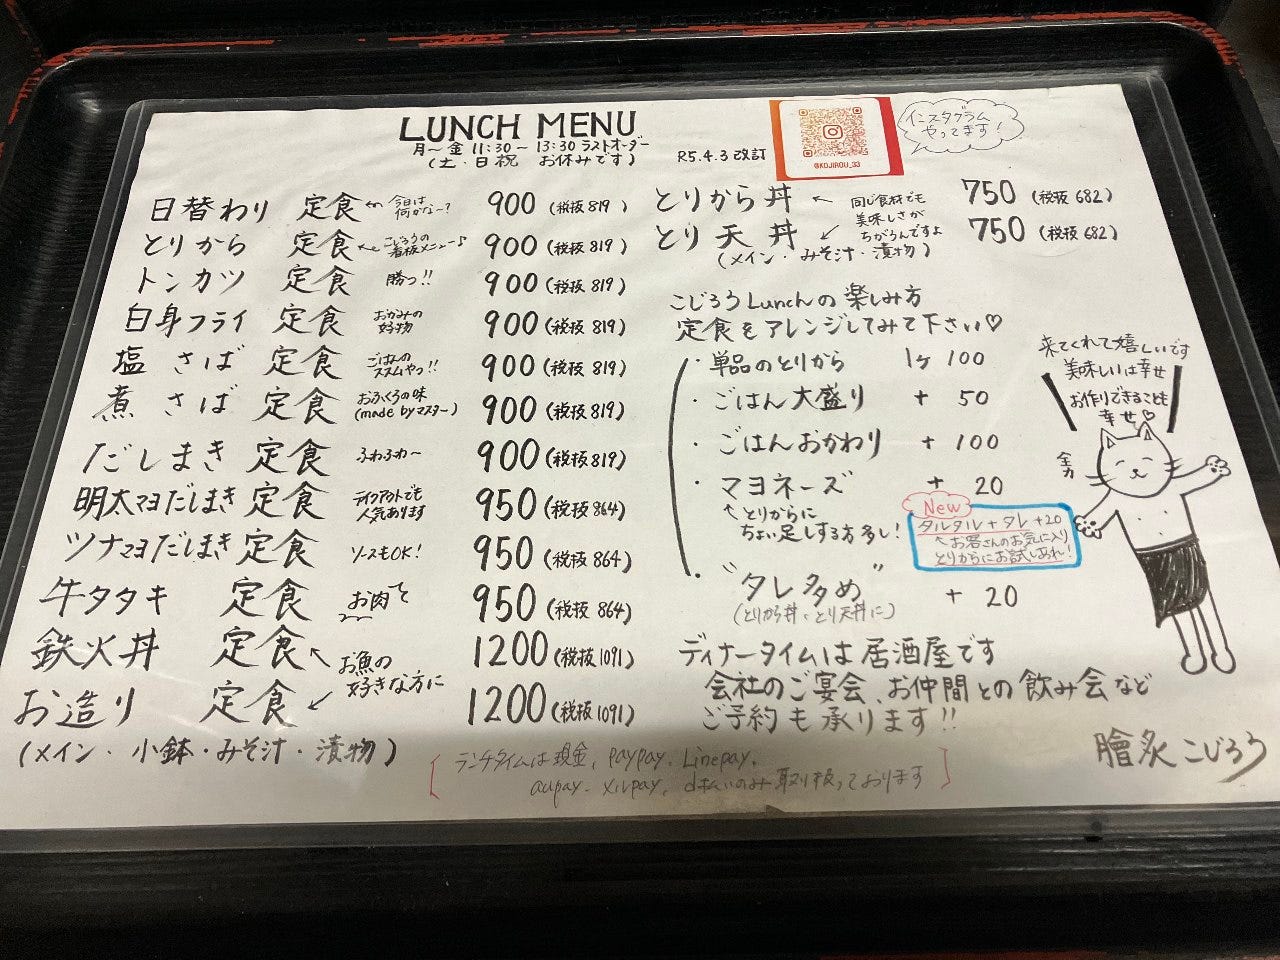 LUNCH MENU
月〜金 11:30〜13:30 ラストオーダー
(土・日祝 お休みです)
R5.4.3 改訂
@KOJIROU_33
インスタグラム
やってます!
日替わり 定食 ← 今日は何かな〜? 900 (税抜819)
とりから 定食 ← こじろうの看板メニュー♪ 900 (税抜819)
トンカツ 定食 勝つ!! 900 (税抜819)
白身フライ 定食 おかみの好物 900 (税抜819)
塩さば 定食 ごはんのススムやつ!! 900 (税抜819)
煮さば 定食 おふくろの味 (made byマスター) 900 (税抜819)
だしまき 定食 ふわふわ〜 900 (税抜819)
明太マヨだしまき 定食 テイクアウトでも人気あります 950 (税抜864)
ツナマヨだしまき 定食 ソースもOK! 950 (税抜864)
牛タタキ 定食 お肉 950 (税抜864)
鉄火丼 定食 1200 (税抜1091)
お魚の
好きな方に
お造り 定食 1200 (税抜1091)
(メイン・小鉢・みそ汁・漬物)
とりから丼 750 (税抜682)
← 同じ食材でも
美味しさが
ちがうんですよ
とり天丼 750 (税抜682)
(メイン・みそ汁・漬物)
こじろうLunchの楽しみ方
定食をアレンジしてみて下さい♡
・単品のとりから 1ヶ 100
・ごはん大盛り + 50
・ごはんおかわり + 100
・マヨネーズ + 20
↑とりからに
ちょい足しする方多し!
New
タルタル+タレ+20
↑お客さんのお気に入り
とりからにお試しあれ!
・"タレ多め" + 20
(とりから丼・とり天丼に)
来てくれて嬉しいです
美味しいは幸せ
お作りできることも
幸せ♡
全力
ディナータイムは居酒屋です
会社のご宴会、お仲間との飲み会など
ご予約も承ります!!
膾炙こじろう
ランチタイムは現金、paypay、Linepay、
aupay、 d払いのみ取り扱っております